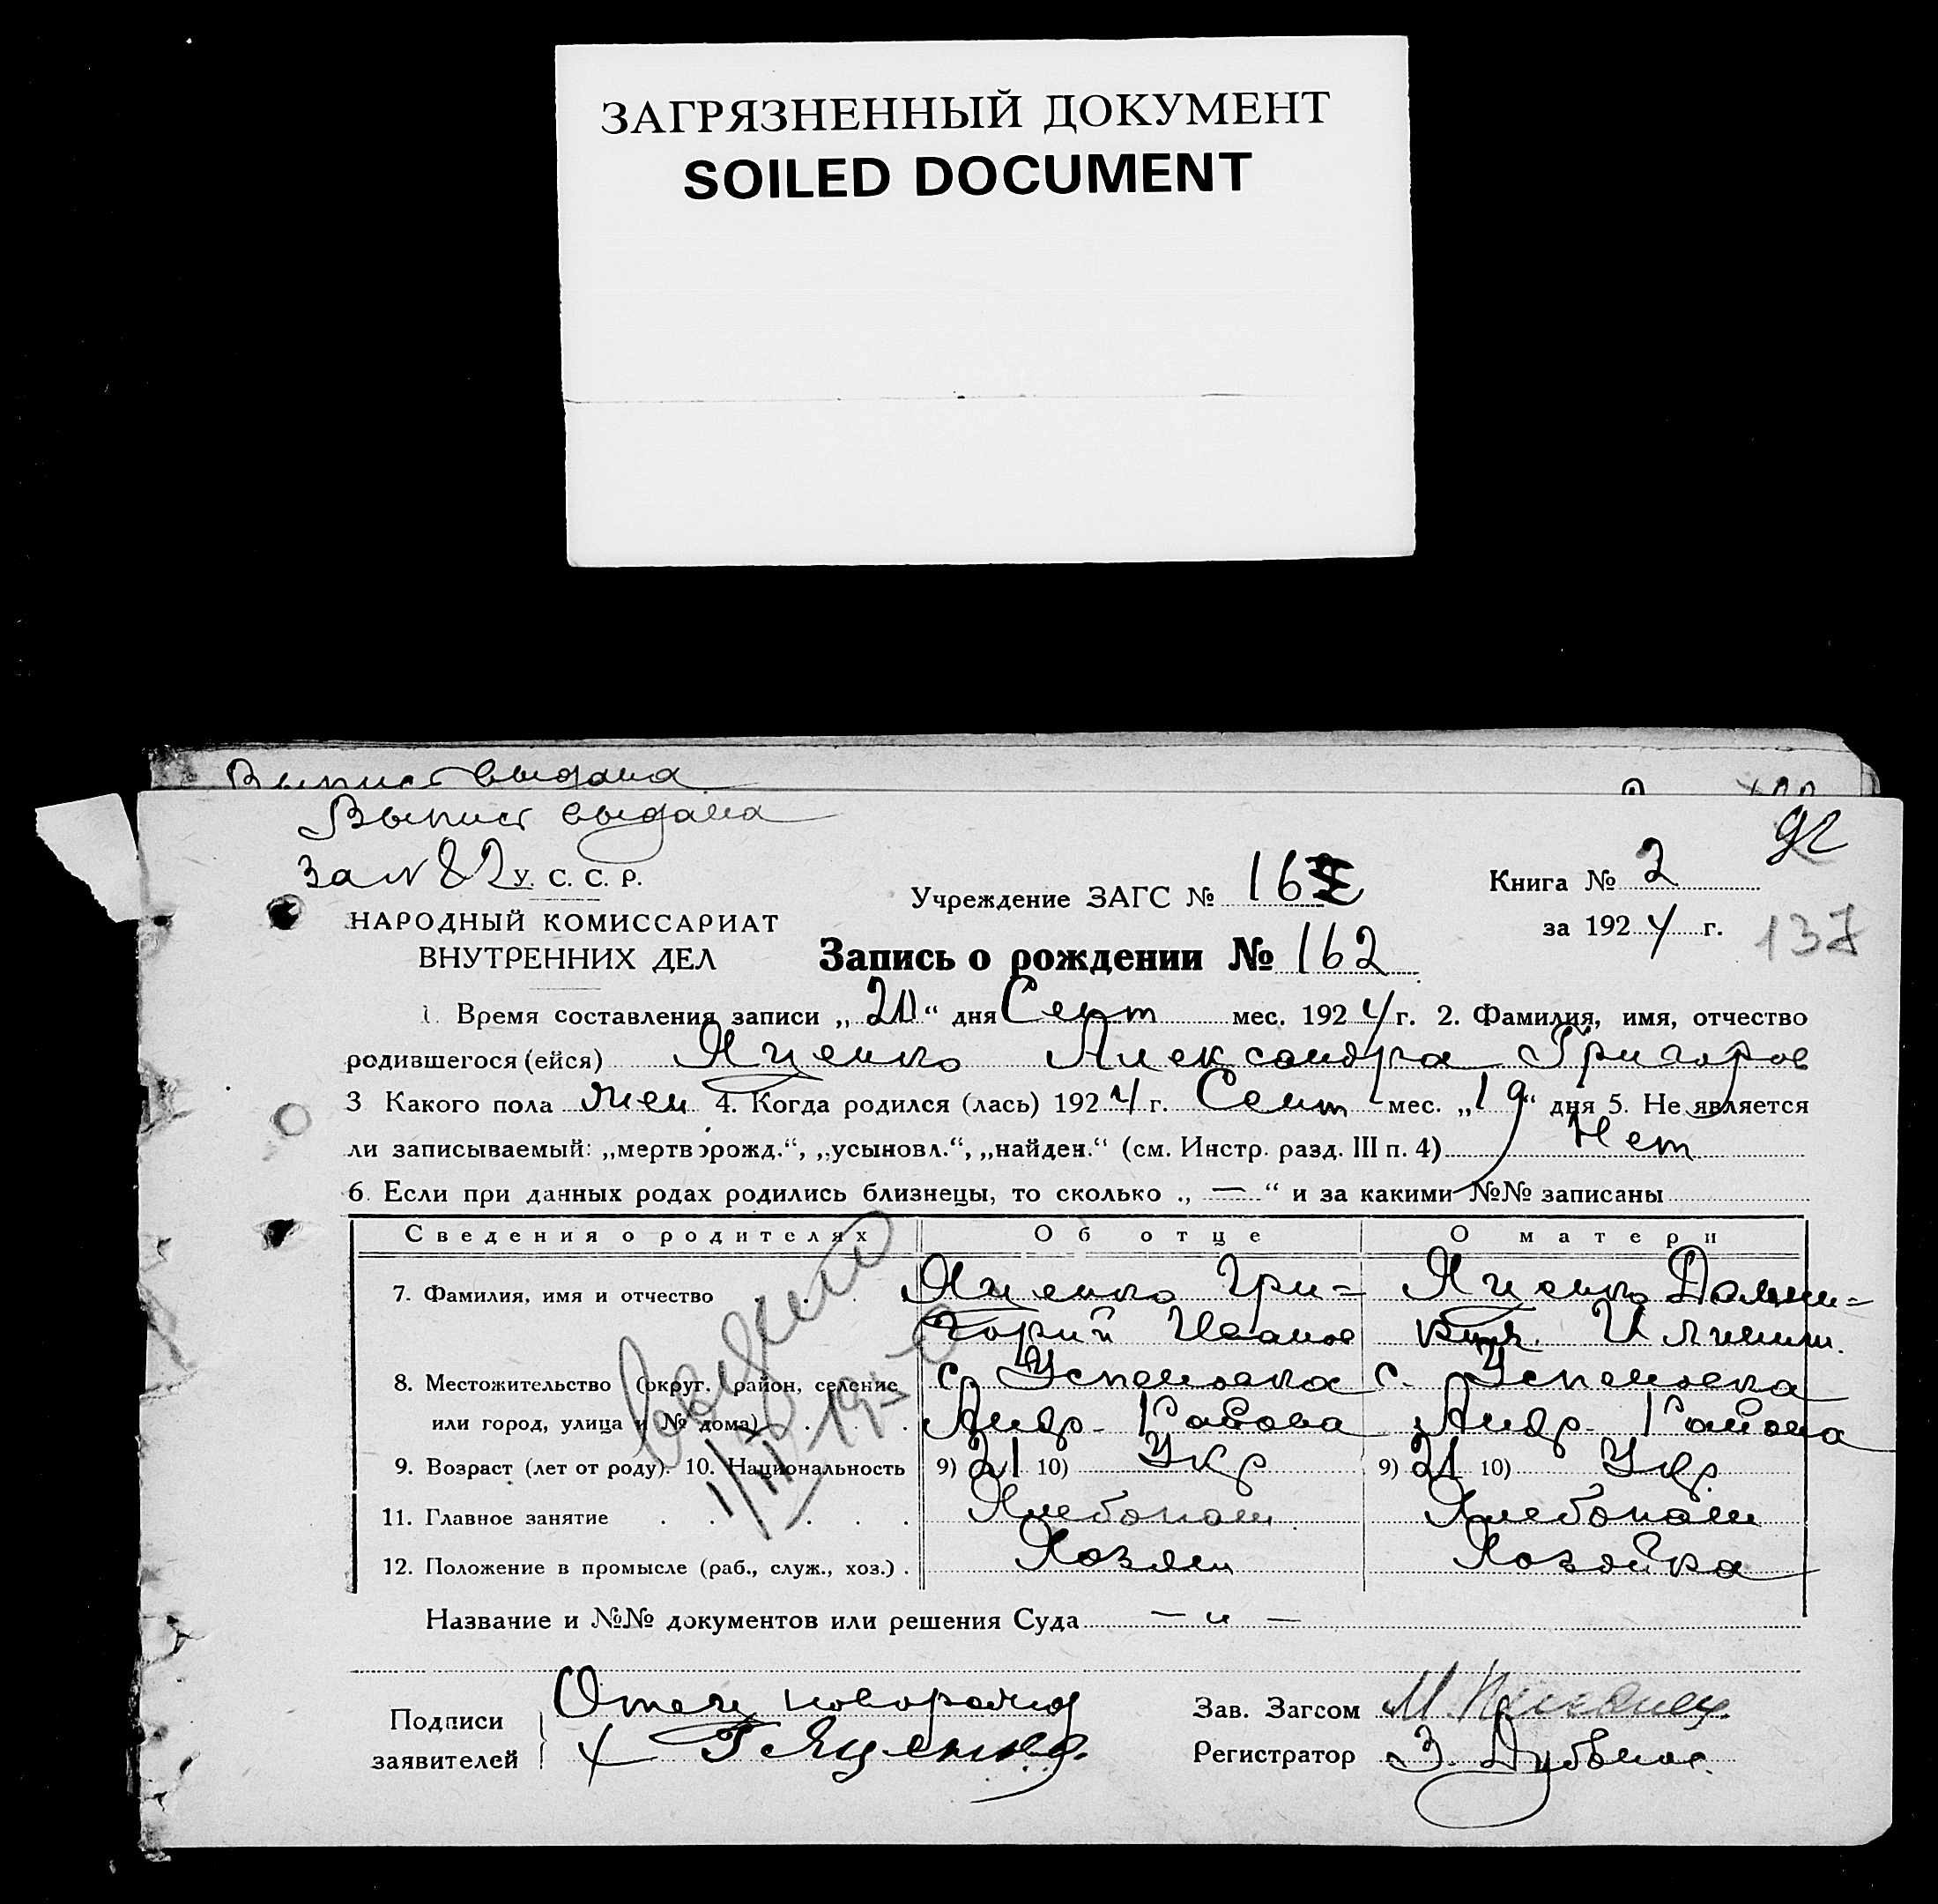 ЗАГРЯЗНЕННЫЙ ДОКУМЕНТ
SOILED DOCUMENT
Выпис выдана
Выпис выдана
за № 82
У. С. С. Р.
НАРОДНЫЙ КОМИССАРИАТ
ВНУТРЕННИХ ДЕЛ
Учреждение ЗАГС № 162
Книга № 2
92
за 1924 г.
137
Запись о рождении № 162
1. Время составления записи „20“ дня Сент мес. 1924 г. 2. Фамилия, имя, отчество
родившегося (ейся) Яценко Александра Григоров
3 Какого пола жен 4. Когда родился (лась) 1924 г. Сент мес. „19“ дня 5. Не является
ли записываемый: „мертворожд.“, „усыновл.“, „найден.“ (см. Инстр. разд. III п. 4) Нет
6. Если при данных родах родились близнецы, то сколько „ — “ и за какими №№ записаны
Сведения о родителях Об отце О матери
7. Фамилия, имя и отчество Яценко Гри= Яценко
горий Иванов
8. Местожительство (округ. район, селение с. Успеновка с. Успеновка
или город, улица и № дома) Андр. Района Андр. Района
9. Возраст (лет от роду). 10. Национальность 9) 21 10) Укр 9) 21 10) Укр
11. Главное занятие Хлебопаш. Хлебопаш
12. Положение в промысле (раб., служ., хоз.) Хозяин Хозяйка
Название и №№ документов или решения Суда — „ —
Подписи заявителей
Отец новорожд
Г Яценко
Зав. Загсом М.
Регистратор З.